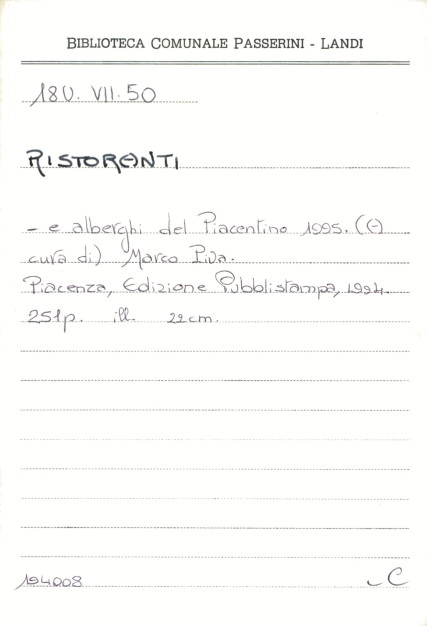 BIBLIOTECA COMUNALE PASSERINI - LANDI
18U. VII. 50
RISTORANTI
- e alberghi del Piacentino 1995. (A
cura di) Marco Piva.
Piacenza, Edizione Pubblistampa, 1994.
251p. ill. 22cm.
194008
C